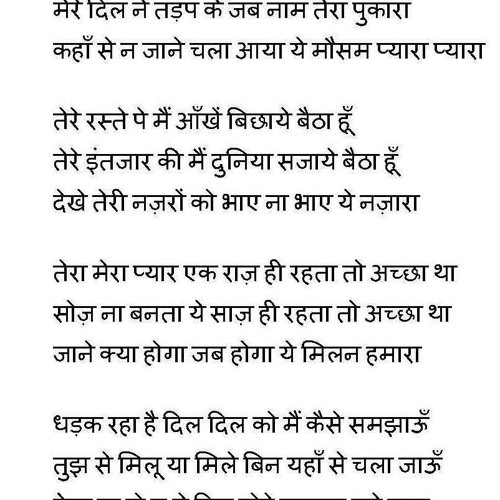 मेरे दिल ने तड़प के जब नाम तेरा पुकारा
कहाँ से न जाने चला आया ये मौसम प्यारा प्यारा
तेरे रस्ते पे मैं आँखें बिछाये बैठा हूँ
तेरे इंतजार की मैं दुनिया सजाये बैठा हूँ
देखे तेरी नज़रों को भाए ना भाए ये नज़ारा
तेरा मेरा प्यार एक राज़ ही रहता तो अच्छा था
सोज़ ना बनता ये साज़ ही रहता तो अच्छा था
जाने क्या होगा जब होगा ये मिलन हमारा
धड़क रहा है दिल दिल को मैं कैसे समझाऊँ
तुझ से मिलू या मिले बिन यहाँ से चला जाऊँ